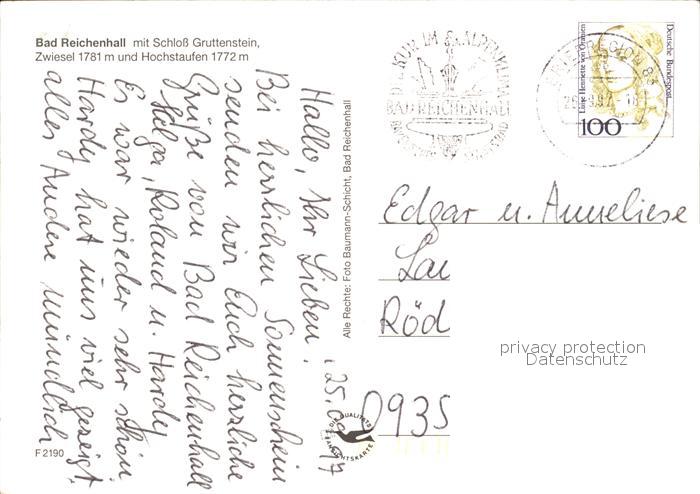 Bad Reichenhall mit Schloß Gruttenstein,
Zwiesel 1781 m und Hochstaufen 1772 m
Hallo, Ihr Lieben!
25.09.97
Bei herrlichen Sonnenschein
senden wir Euch herzliche
Grüße von Bad Reichenhall
Helga, Roland u. Hardy
Es war wieder sehr schön.
Hardy hat uns viel gezeigt.
alles Andere mündlich
F 2190
Alle Rechte: Foto Baumann-Schicht, Bad Reichenhall
DIE QUALITÄTS
ANSICHTSKARTE
BAD REICHENHALL
Deutsche Bundespost
Luise Henriette von Oranien
100
Edgar u. Anneliese
Lau
Röd
0935
privacy protection
Datenschutz